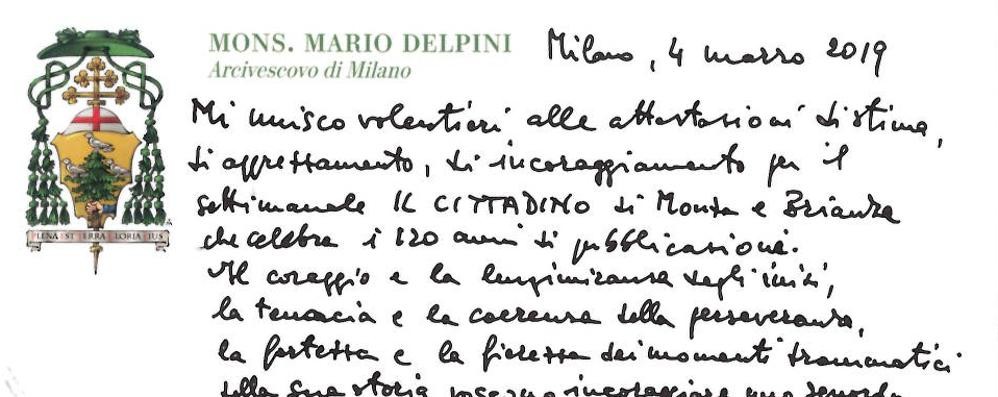 MONS. MARIO DELPINI
Arcivescovo di Milano
Milano, 4 marzo 2019
PLENA EST TERRA GLORIA EIUS
Mi unisco volentieri alle attestazioni di stima,
di apprezzamento, di incoraggiamento per il
settimanale IL CITTADINO di Monza e Brianza
che celebra i 120 anni di pubblicazione.
Il coraggio e la lungimiranza degli inizi,
la tenacia e la coerenza della perseveranza,
la fortezza e la fierezza dei momenti drammatici
della sua storia possano incoraggiare uno sguardo